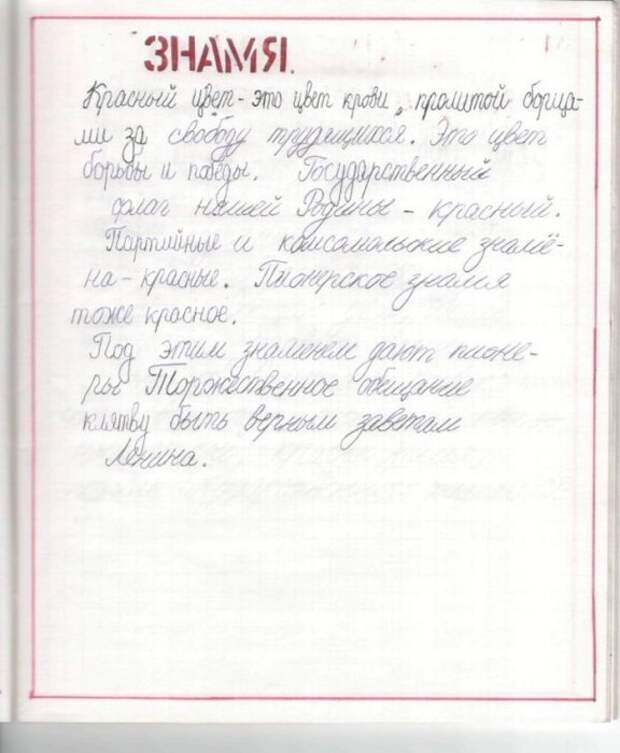 ЗНАМЯ.
Красный цвет - это цвет крови, пролитой борца-
ми за свободу трудящихся. Это цвет
борьбы и победы. Государственный
флаг нашей Родины - красный.
Партийные и комсомольские знамё-
на - красные. Пионерское знамя
тоже красное.
Под этим знаменем дают пионе-
ры Торожественное обещание
клятву быть верным заветам
Ленина.